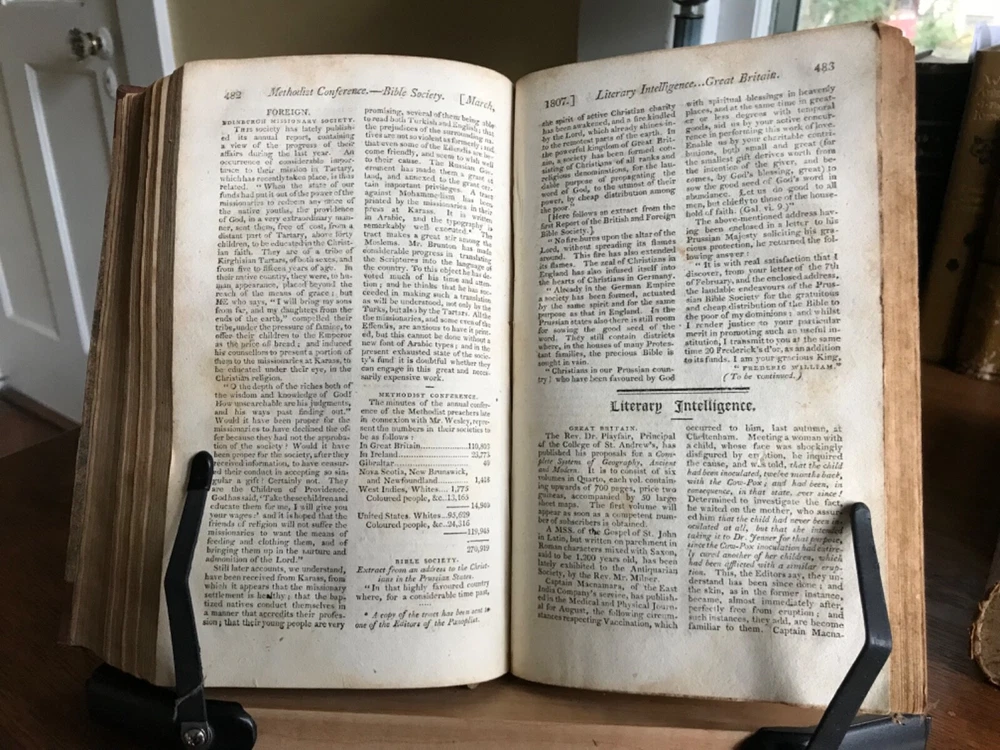 482 Methodist Conference.—Bible Society. [March,
FOREIGN.
EDINBURGH MISSIONARY SOCIETY.
This society has lately publish-
ed its annual report, containing
a view of the progress of their
affairs during the last year. An
occurrence of considerable impor-
tance to their mission in Tartary,
which has recently taken place, is thus
related. "When the state of our
funds had put it out of the power of the
missionaries to redeem any more of
the native youths, the providence
of God, in a very extraordinary man-
ner, sent them, free of cost, from a
distant part of Tartary, above forty
children, to be educated in the Christ-
ian faith. They are of a tribe of
Kirghisian Tartars, of both sexes, and
from five to fifteen years of age. In
their native country, they were, to hu-
man appearance, placed beyond the
reach of the means of grace; but
HE who says, "I will bring my sons
from far, and my daughters from the
ends of the earth," compelled their
tribe, under the pressure of famine, to
offer their children to the Emperor
as the price of bread; and inclined
his counsellors to present a portion of
them to the missionaries at Karass, to
be educated under their eye, in the
Christian religion.
"O the depth of the riches both of
the wisdom and knowledge of God!
How unsearchable are his judgments,
and his ways past finding out."
Would it have been proper for the
missionaries to have declined the of-
fer because they had not the approba-
tion of the society? Would it have
been proper for the society, after they
received information, to have censur-
ed their conduct in accepting so sin-
gular a gift? Certainly not. They
are the Children of Providence.
God has said, "Take these children and
educate them for me, I will give you
your wages:" and it is hoped that the
friends of religion will not suffer the
missionaries to want the means of
feeding and clothing them, and of
bringing them up in the nurture and
admonition of the Lord."
Still later accounts, we understand,
have been received from Karass, from
which it appears that the missionary
settlement is healthy; that the bap-
tized natives conduct themselves in
a manner that accredits their profes-
sion; that their young people are very
promising, several of them being able
to read both Turkish and English; that
the prejudices of the surrounding na-
tives are not so violent as formerly; and
that even some of the Effendis are be-
come friendly, and seem to wish well
to their cause. The Russian Gov-
ernment has made them a grant of
land, and annexed to the grant cer-
tain important privileges. A tract
against Mohammedism has been
printed by the missionaries in their
press at Karass. It is written
in Arabic, and the typography is
remarkably well executed.* The
tract makes a great stir among the
Moslems. Mr. Brunton has made
considerable progress in translating
the Scriptures into the language of
the country. To this object he has de-
voted much of his time and atten-
tion; and he thinks that he has suc-
ceeded in making such a translation
as will be understood, not only by the
Turks, but also by the Tartars. All the
missionaries, and some even of the
Effendis, are anxious to have it print-
ed, but this cannot be done without a
new font of Arabic types; and in the
present exhausted state of the socie-
ty's fund it is doubtful whether they
can engage in this great and neces-
sarily expensive work.
METHODIST CONFERENCE.
The minutes of the annual confer-
ence of the Methodist preachers late
in connexion with Mr. Wesley, repre-
sent the numbers in their societies to
be as follows:
In Great Britain 110,803
In Ireland 23,773
Gibraltar 40
Nova Scotia, New Brunswick,
and Newfoundland 1,418
West Indies, Whites.... 1,775
Coloured people, &c. 13,165
14,940
United States. Whites...95,629
Coloured people, &c...24,316
119,945
270,919
BIBLE SOCIETY.
Extract from an address to the Christ-
ians in the Prussian States.
"In that highly favoured country
where, for a considerable time past,
* A copy of the tract has been sent to
one of the Editors of the Panoplist.
1807.] Literary Intelligence...Great Britain. 483
the spirit of active Christian charity
has been awakened, and a fire kindled
by the Lord, which already shines in-
to the remotest parts of the earth. In
the powerful kingdom of Great Brit-
ain, a society has been formed con-
sisting of Christians of all ranks and
religious denominations, for the lau-
dable purpose of propagating the
word of God, to the utmost of their
power, by cheap distribution among
the poor."
[Here follows an extract from the
first Report of the British and Foreign
Bible Society.]
"No fire burns upon the altar of the
Lord, without spreading its flames
around. This fire has also extended
its flames. The zeal of Christians in
England has also infused itself into
the hearts of Christians in Germany.
"Already in the German Empire
a society has been formed, actuated
by the same spirit and for the same
purpose as that in England. In the
Prussian states also there is still room
for sowing the good seed of the
word. They still contain districts
where, in the houses of many Protes-
tant families, the precious Bible is
sought in vain.
"Christians in our Prussian coun-
try! who have been favoured by God
with spiritual blessings in heavenly
places, and at the same time in great-
er or less degrees with temporal
goods, aid us by your active concur-
rence in performing this work of love.
Enable us by your charitable contri-
butions, both small and great (for
the smallest gift derives worth from
the intention of the giver, and be-
comes, by God's blessing, great) to
sow the good seed of God's word in
abundance. Let us do good to all
men, but chiefly to those of the house-
hold of faith. (Gal. vi. 9.)"
The above-mentioned address hav-
ing been enclosed in a letter to his
Prussian Majesty soliciting his gra-
cious protection, he returned the fol-
lowing answer:
"It is with real satisfaction that I
discover, from your letter of the 7th
of February, and the enclosed address,
the laudable endeavours of the Prus-
sian Bible Society for the gratuitous
and cheap distribution of the Bible to
the poor of my dominions; and whilst
I render justice to your particular
merit in promoting such an useful in-
stitution, I transmit to you at the same
time 20 Frederick's d'or, as an addition
to its funds. I am your gracious King,
"FREDERIC WILLIAM."
(To be continued.)
Literary Intelligence.
GREAT BRITAIN.
The Rev. Dr. Playfair, Principal
of the College of St. Andrew's, has
published his proposals for a Com-
plete System of Geography, Ancient
and Modern. It is to consist of six
volumes in Quarto, each vol. contain-
ing upwards of 700 pages, price two
guineas, accompanied by 50 large
sheet maps. The first volume will
appear as soon as a competent num-
ber of subscribers is obtained.
A MSS. of the Gospel of St. John
in Latin, but written on parchment in
Roman characters mixed with Saxon,
said to be 1,200 years old, has been
lately exhibited to the Antiquarian
Society, by the Rev. Mr. Milner.
Captain Macnamara, of the East
India Company's service, has publish-
ed in the Medical and Physical Journ-
al for August, the following circum-
stances respecting Vaccination, which
occurred to him, last autumn, at
Cheltenham. Meeting a woman with
a child, whose face was shockingly
disfigured by eruption, he inquired
the cause, and was told, that the child
had been inoculated, twelve months back,
with the Cow-Pox; and had been, in
consequence, in that state, ever since!
Determined to investigate the fact,
he waited on the mother, who assur-
ed him that the child had never been in-
oculated at all, but that she intended
taking it to Dr. Jenner for that purpose,
since the Cow-Pox inoculation had entire-
ly cured another of her children, which
had been afflicted with a similar erup-
tion. This, the Editors say, they un-
derstand has been since done; and
the skin, as in the former instance,
became, almost immediately after,
perfectly free from eruption; and
such instances, they add, are become
familiar to them. Captain Macna-